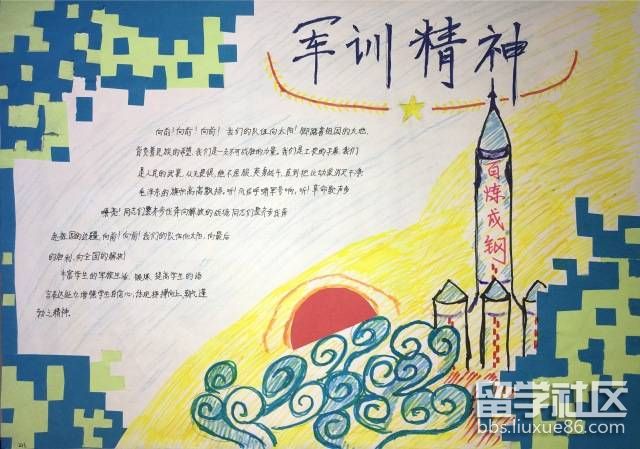 军训精神
百炼成钢
向前!向前!向前! 我们的队伍向太阳! 脚踏着祖国的大地,
背负着民族的希望,我们是一支不可战胜的力量。我们是工农的子弟,我们
是人民的武装,从无畏惧,绝不屈服,英勇战斗,直到把反动派消灭干净,
毛泽东的旗帜高高飘扬。听!风在呼啸军号响,听!革命歌声多
嘹亮! 同志们整齐步伐奔向解放的战场 同志们整齐步伐奔
赴祖国的边疆,向前!向前!我们的队伍向太阳,向最后
的胜利,向全国的解放!
丰富学生的学校生活 锻炼 提高学生的语
言表达能力 增强学生自信心
精神。
留学社区
bbs.liuxue86.com